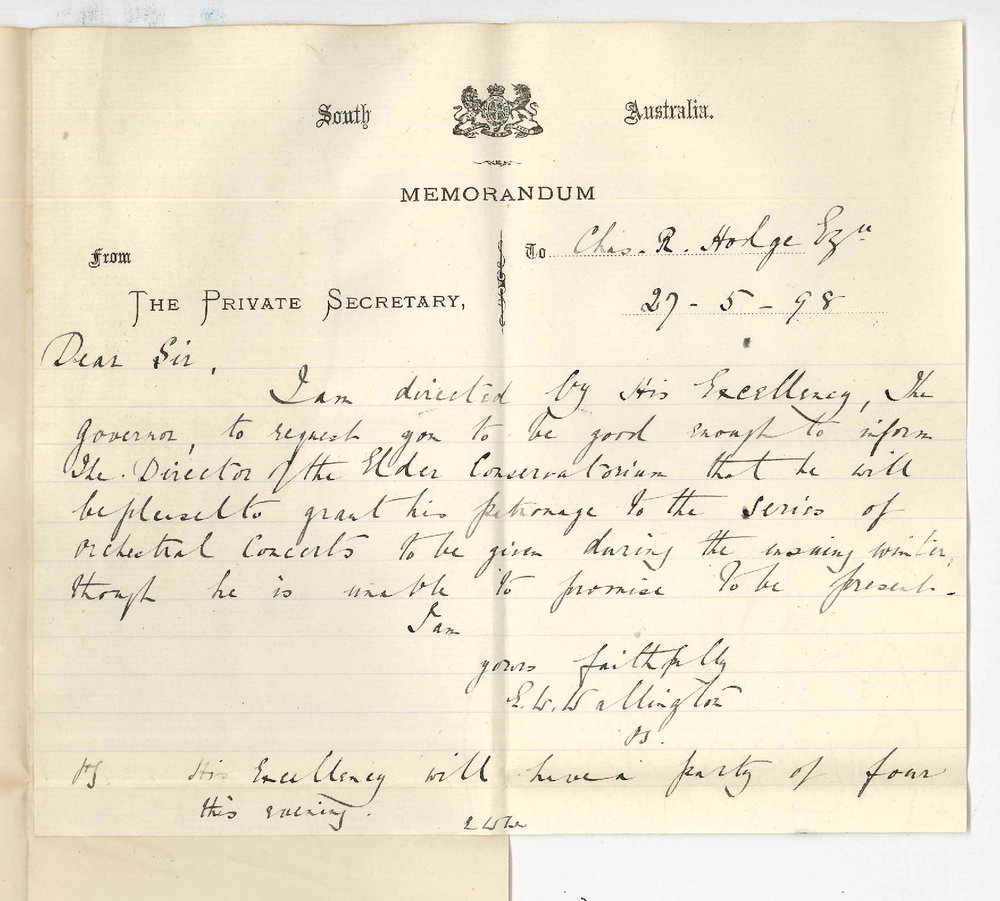 South Australia.
MEMORANDUM
From
To Chas. R. Hodge Esqre
THE PRIVATE SECRETARY,
27-5-98
Dear Sir,
I am directed by His Excellency, The
Governor, to request you to be good enough to inform
The Director of the Elder Conservatorium that he will
be pleased to grant his patronage to the series of
Orchestral Concerts to be given during the ensuing winter,
though he is unable to promise to be present-
I am
yours faithfully
E.W. Wallington
PS.
PS His Excellency will have a party of four
this evening.